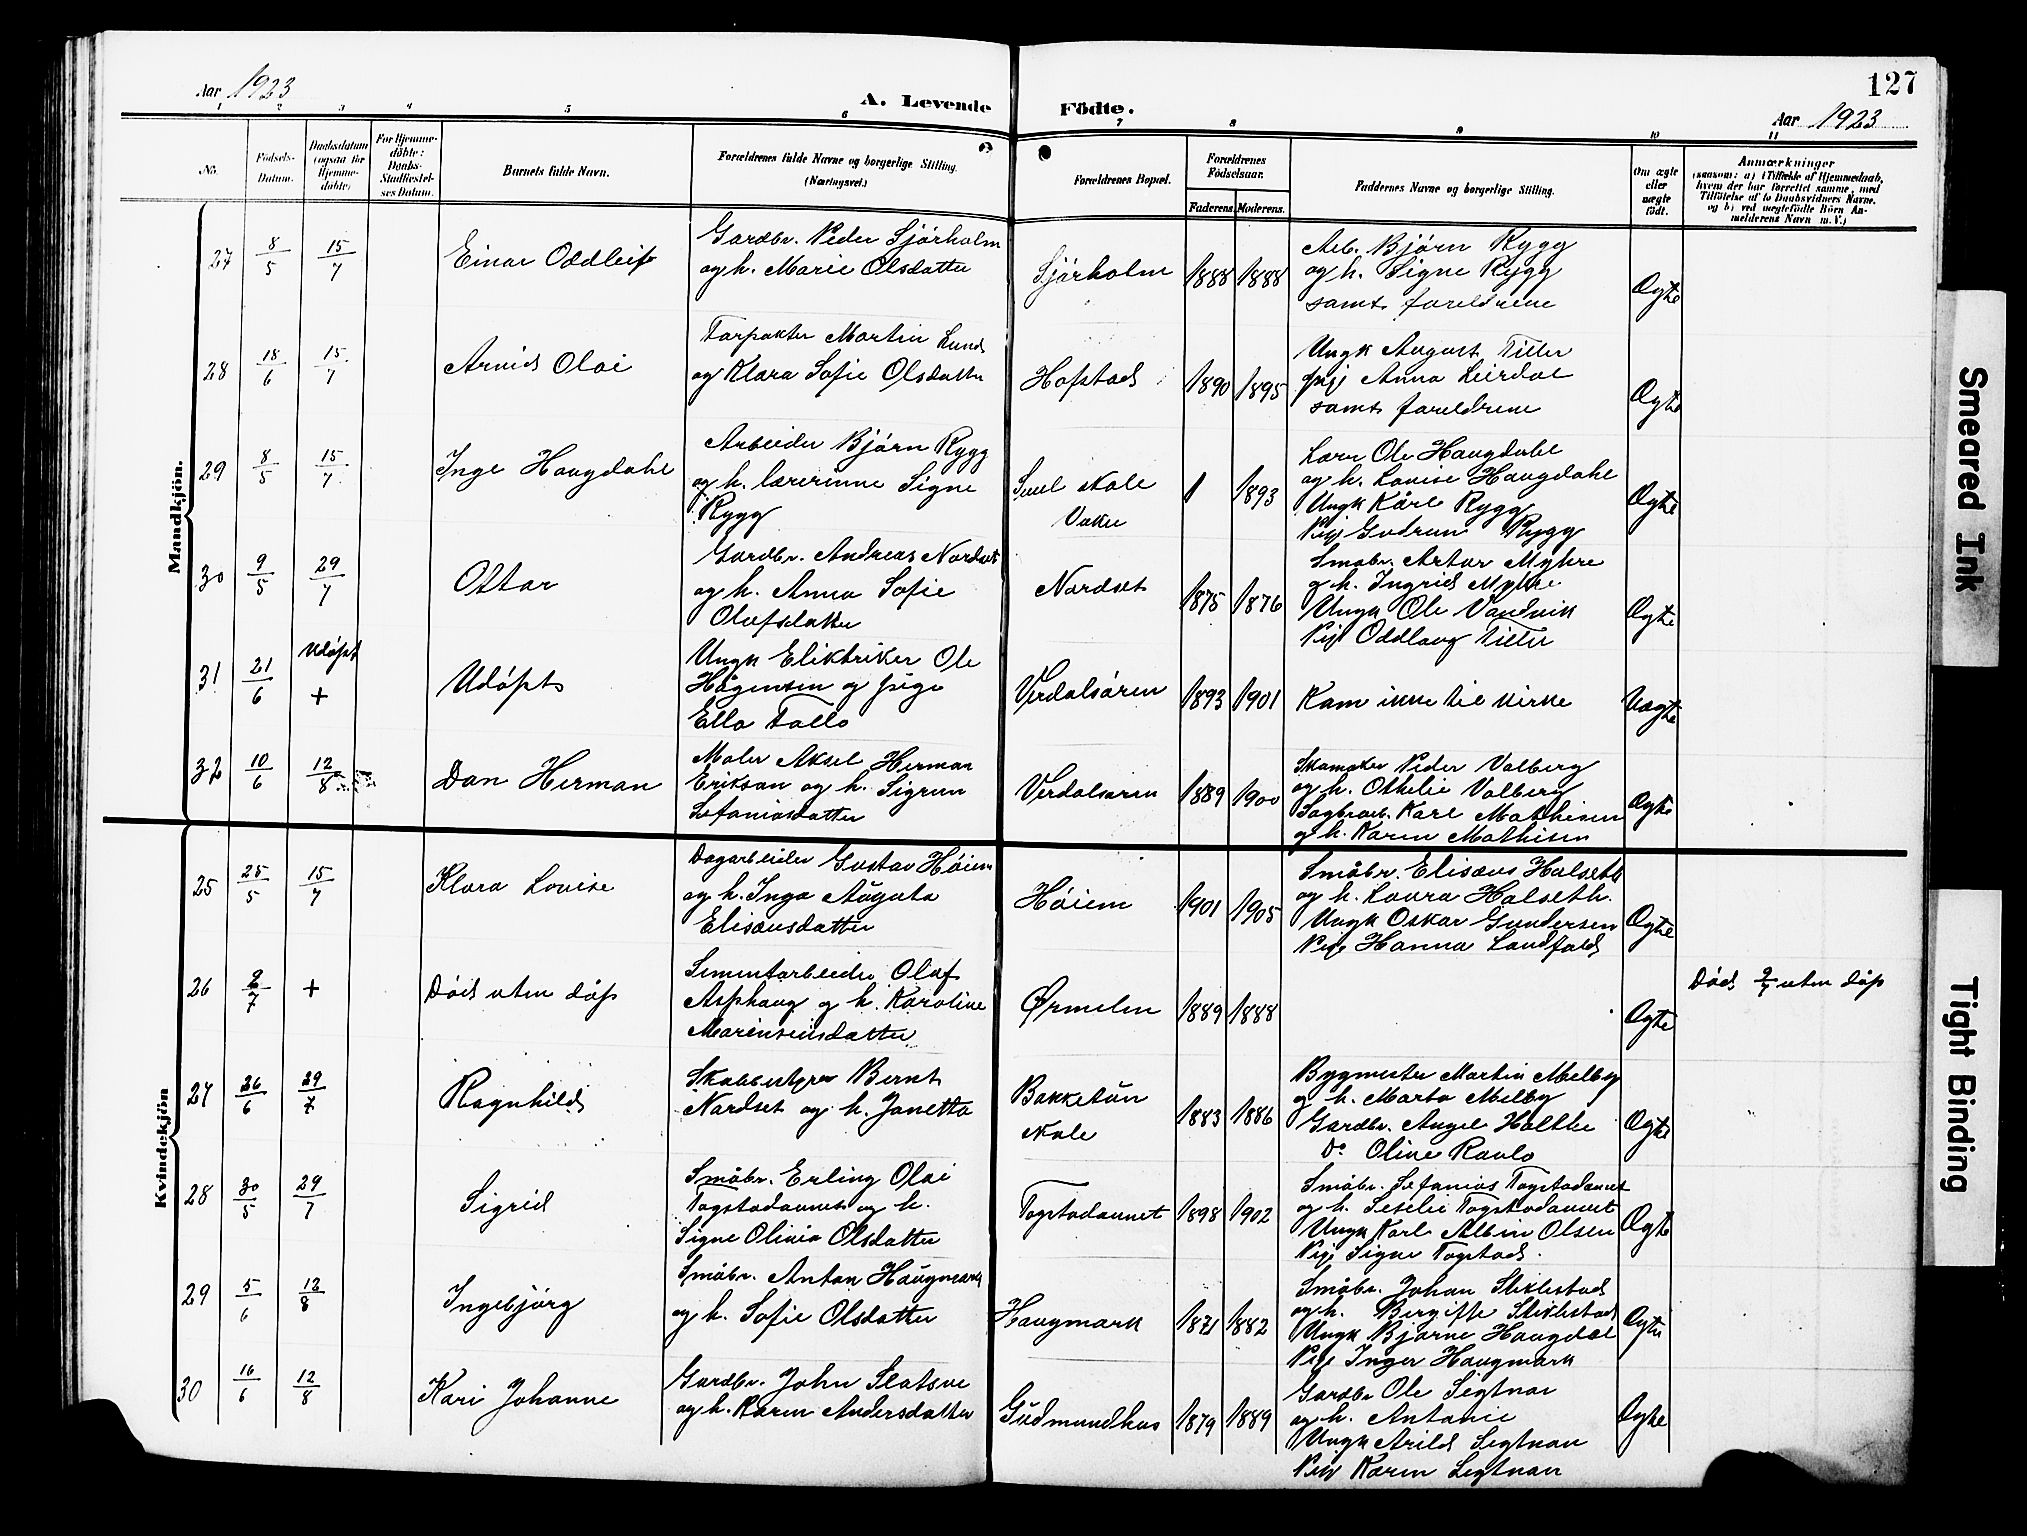 127
Aar 1923
A. Levende Födte.
Aar 1923
1 2 3 4 5 6 7 8 9 10 11
No.
Födsels-Datum.
Daabsdatum (ogsaa for Hjemmedöbte)
For Hjemmedöbte: Daabs-Stadfæstelses Datum.
Barnets fulde Navn.
Forældrenes fulde Navne og borgerlige Stilling. (Næringsvei.)
Forældrenes Bopæl.
Forældrenes Födselsaar.
Faderens. Moderens.
Faddernes Navne og borgerlige Stilling.
Om ægte eller uægte födt.
Anmærkninger
(saasom: a) i Tilfælde af Hjemmedaab, hvem der har forrettet samme, med Tilföielse af to Daabsvidners Navne. og b) ved uægtefödte Börn Anmelderens Navn m. V.)
Mandkjön.
27 8/5 15/7 Einar Oddleif
Gardbr. Peder Sjørholm
og h. Marie Olsdatter
Sjørholm 1888 1888
Arb. Bjørn Rygg
og h. Signe Rygg
samt foreldrene
Ægte
28 18/6 15/7 Arvid Olai
Forpakter Martin Lund
og Klara Sofie Olsdatter
Hofstad 1890 1895
Ungk August Tiller
pige Anna Leirdal
samt foreldrene
Ægte
29 8/5 15/7 Inge Haugdahl
Arbeider Bjørn Rygg
og h. lærerinne Signe
Rygg
skole
1 1893
Lærer Ole Haugdahl
og h. Lovise Haugdahl
Ungk Kåre Rygg
Pige Gudrun Rygg
Ægte
30 9/5 29/7 Ottar
Gardbr. Andreas Nordset
og h. Anna Sofie
Olafsdatter
Nordset 1875 1876
Småbr. Artur Myhre
og h. Ingrid Myhre
Ungk Ole Vandvik
Pige Oddlaug Tiller
Ægte
31 21/6 Udøpt + Udøpt
Ungk Elektriker Ole
Hågensen og pige
Ella Tollo
Verdalsøren 1893 1901
Kam ikke til kirke
Uægte
32 10/6 12/8 Dan Herman
Maler Aksel Herman
Erikson og h. Sigrun
Sefaniasdatter
Verdalsøren 1889 1900
Skomaker Peder Valberg
og h. Othelie Valberg
Sagbrarb. Karl Mathisen
og h. Karen Mathisen
Ægte
Kvindekjön
25 25/5 15/7 Klara Lovise
Dagarbeider Gustav Høiem
og h. Inga Augusta
Elisæusdatter
Høiem 1901 1905
Småbr. Elisæus Halseth
og h. Laura Halseth.
Ungk Oskar Gundersen
Pige Hanna Landfald
Ægte
26 2/7 + Død uten dåp
Sementarbeider Olaf
Asphaug og h. Karoline
Marensiusdatter
Ørmelen 1889 1888
Ægte
Død 2/7 uten dåp
27 26/6 29/7 Ragnhild
Skolebestyrer Bernt
Nordset og h. Janetta
Bakketun
skole
1883 1886
Bygmester Martin Melby
og h. Marta Melby
Gardbr. Angel Holthe
Do Oline Raulo
Ægte
28 30/5 29/7 Sigrid
Småbr. Erling Olai
Togstadaunet og h.
Signe Olivia Olsdatter
Togstadaunet 1898 1902
Småbr. Sefanias Togstadaunet
og h. Seselie Togstadaunet
Ungk Karl Albin Olsen
Pige Signe Togstad.
Ægte
29 5/6 12/8 Ingebjørg
Småbr. Anton Haugmark
og h. Sofie Olsdatter
Haugmark 1871 1882
Småbr. Johan Stiklestad
og h. Bergitte Stiklestad
Ungk Bjarne Haugdal
Pige Inger Haugmark
Ægte
30 16/6 12/8 Kari Johanne
Gardbr. John Slatsve
og h. Karen Andersdatter
Gudmundhus 1879 1889
Gardbr Ole Segtnan
og h. Antonie
Ungk Arild Segtnan
Pige Karen Segtnan
Ægte
Smeared Ink
Tight Binding